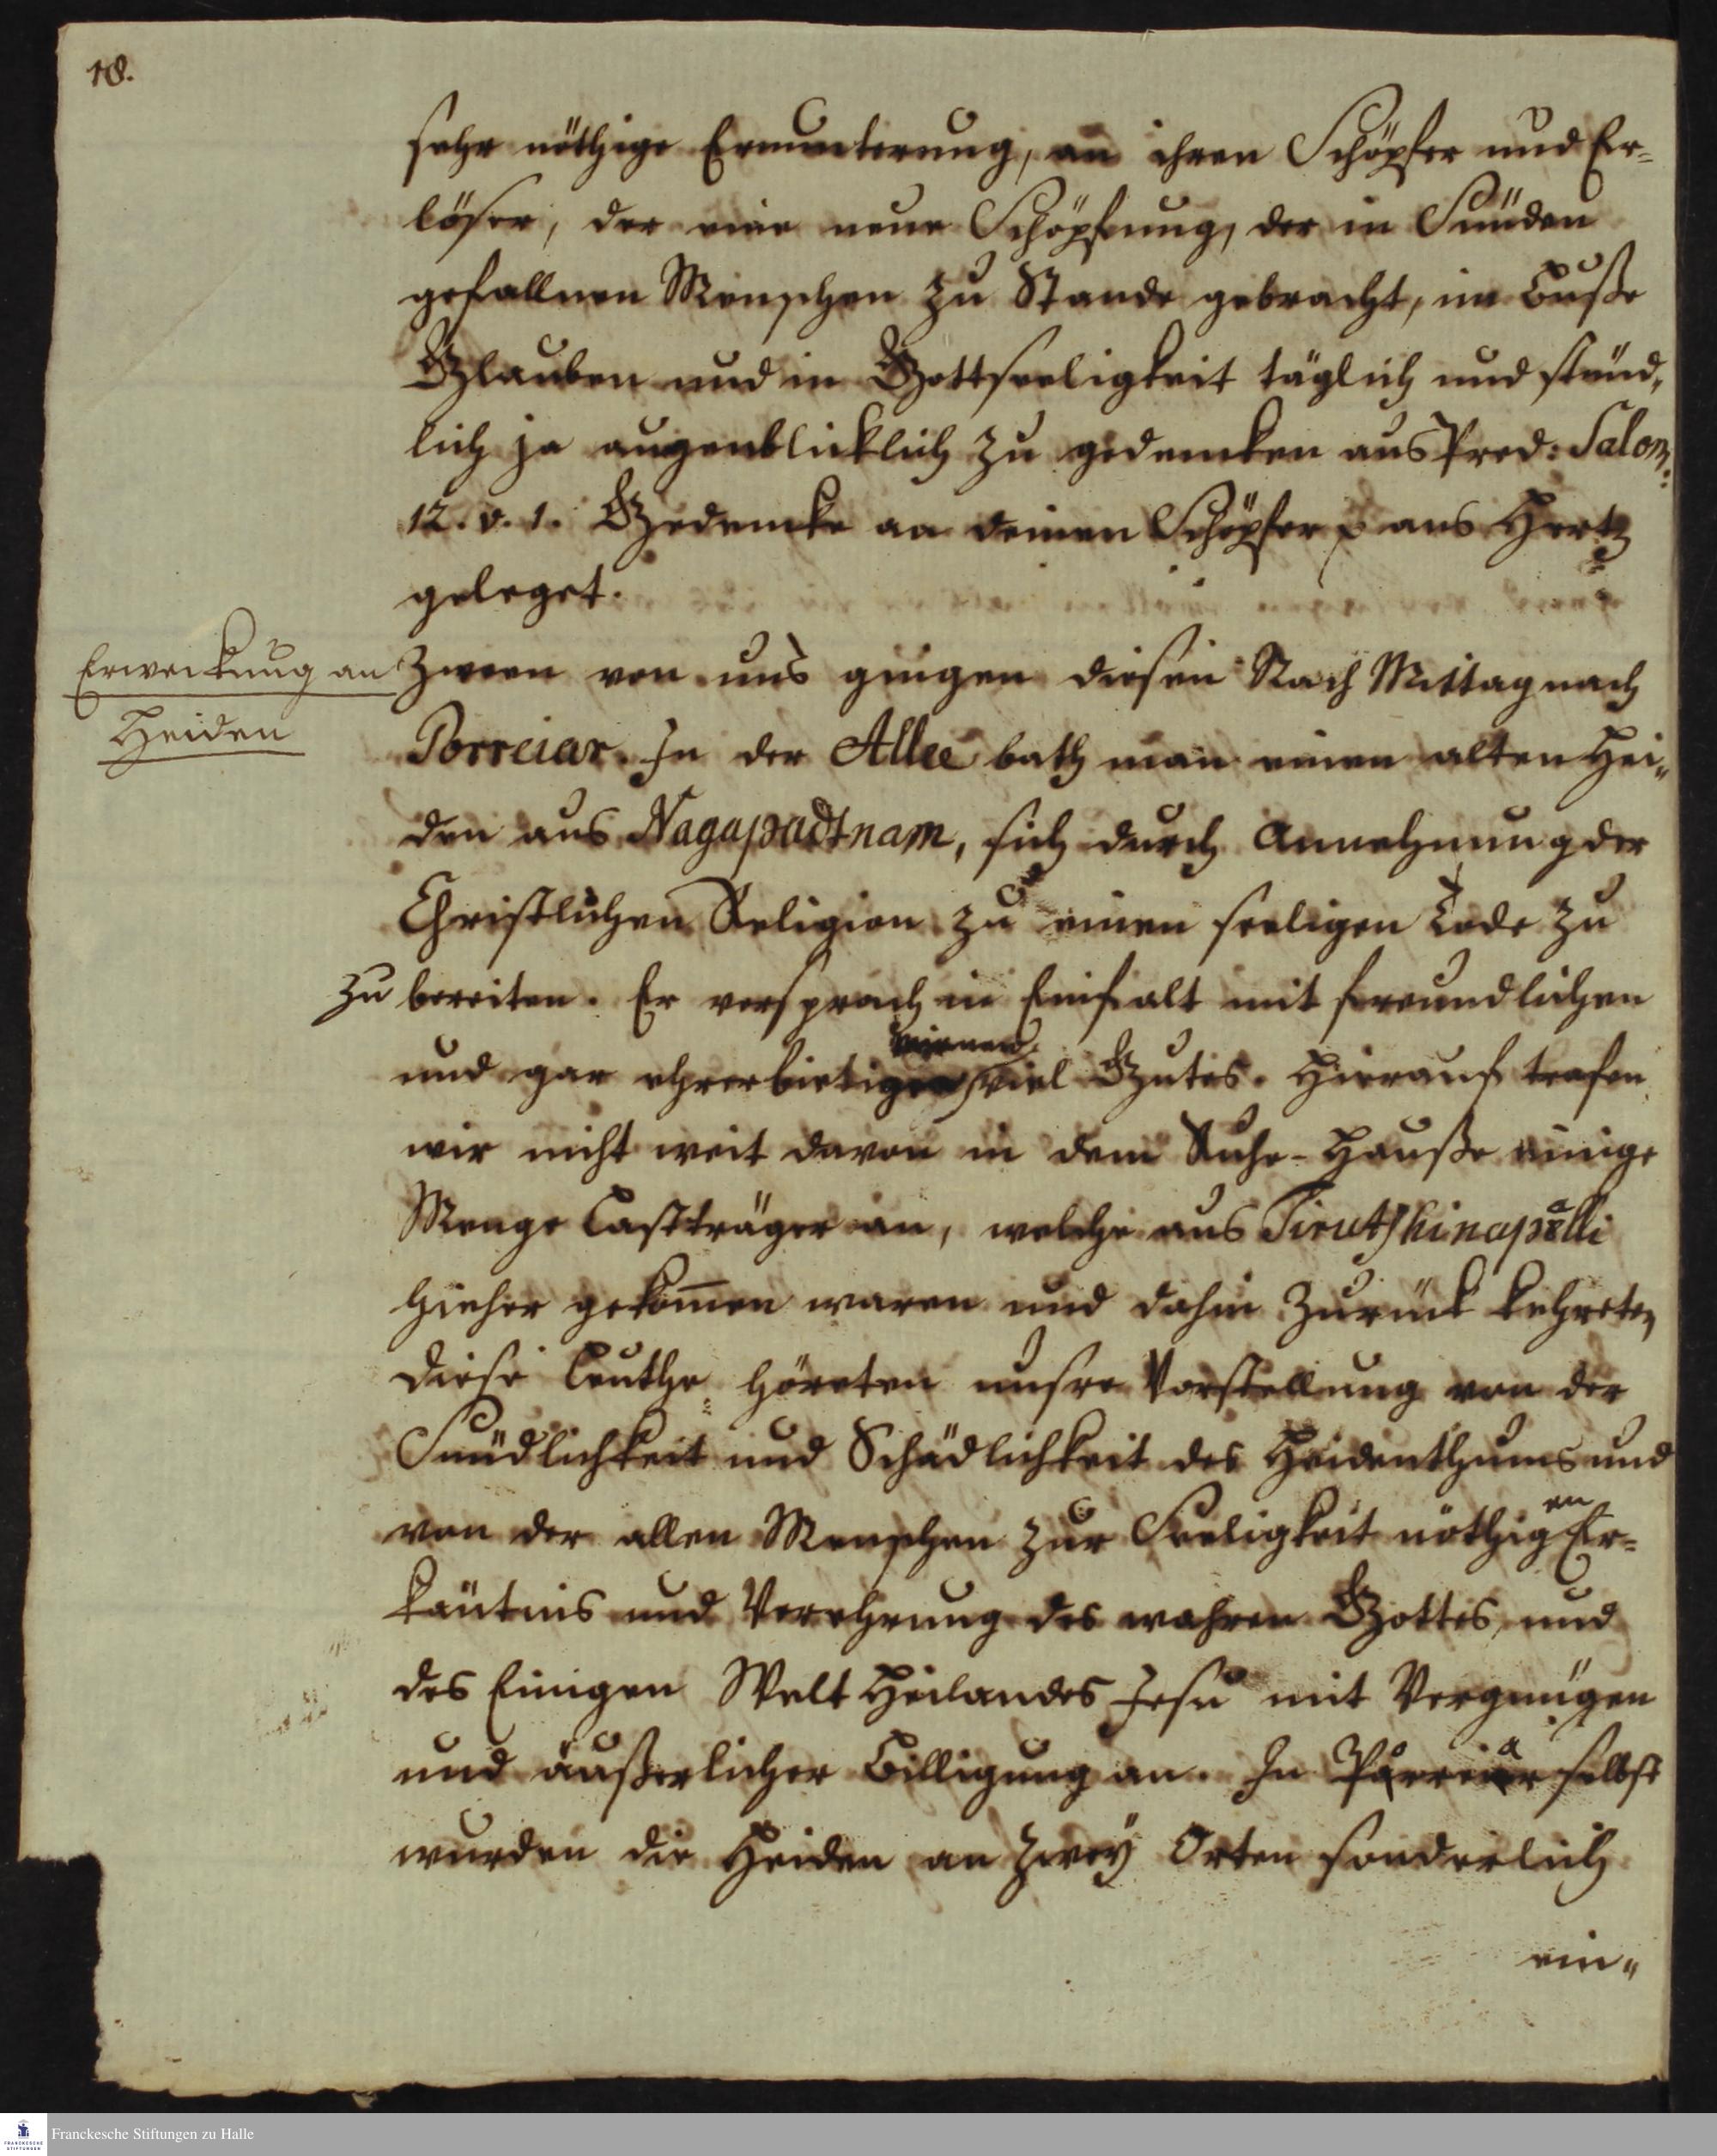 18.
sehr nöthige Ermunterung, an ihren Schöpfer und Er-
löser, der eine neue Schöpfung, der in Sünden
gefallnen Menschen zu Stande gebracht, im Buße
Glauben und in Gottseeligkeit täglich und stünd-
lich ja augenblicklich zu gedencken aus Pred: Salom:
12. v. 1. Gedencke an deinen Schöpfer ans Hertz
geleget.
Erweckung an
Heiden
Zween von uns gingen diesen Nach Mittag nach
Porreiar. In der Allee bath man einen alten Hei-
den aus Nagapadtnam, sich durch Annehmung der
Christlichen Religion zu einen seeligen Tode zu
zu bereiten. Er versprach in Einfalt mit freundlichen
und gar ehrerbietigen viel Gutes. Hierauf trafen
wir nicht weit davon in dem Ruhe-Hauße einige
Menge Lastträger an, welche aus Tirutshinapalli
hieher gekom̅en waren und dahin zurück kehreten,
diese Leuthe höreten unsre Vorstellung von der
Sündlichkeit und Schädlichkeit des Heidenthums und
von der allen Menschen zur Seeligkeit nöthigen Er-
käntnis und Verehrung des wahren Gottes, und
des Einigen Welt Heilandes Jesu mit Vergnügen
und äußerlicher Billigung an. In Poreiar selbst
wurden die Heiden an zwey Orten sonderlich
ein-
Franckesche Stiftungen zu Halle
FRANCKESCHE
STIFTUNGEN